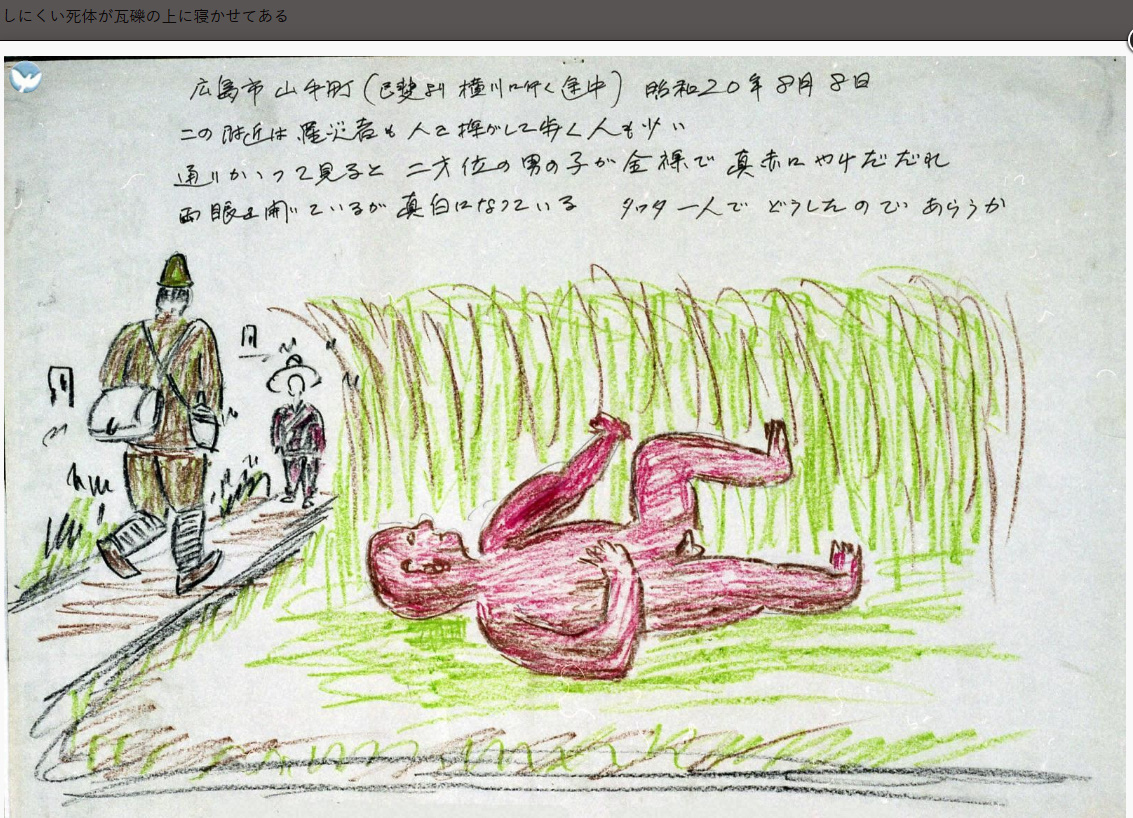 しにくい死体が瓦礫の上に寝かせてある
広島市 山手町 (己斐より 横川に行く途中) 昭和20年8月8日
この附近は 罹災者も 人を探がして歩く人も少い
通りかゝって見ると 二才位の男の子が全裸で 真赤にやけただれ
両眼を開いているが 真白になっている タッタ一人で どうしたのであらうか